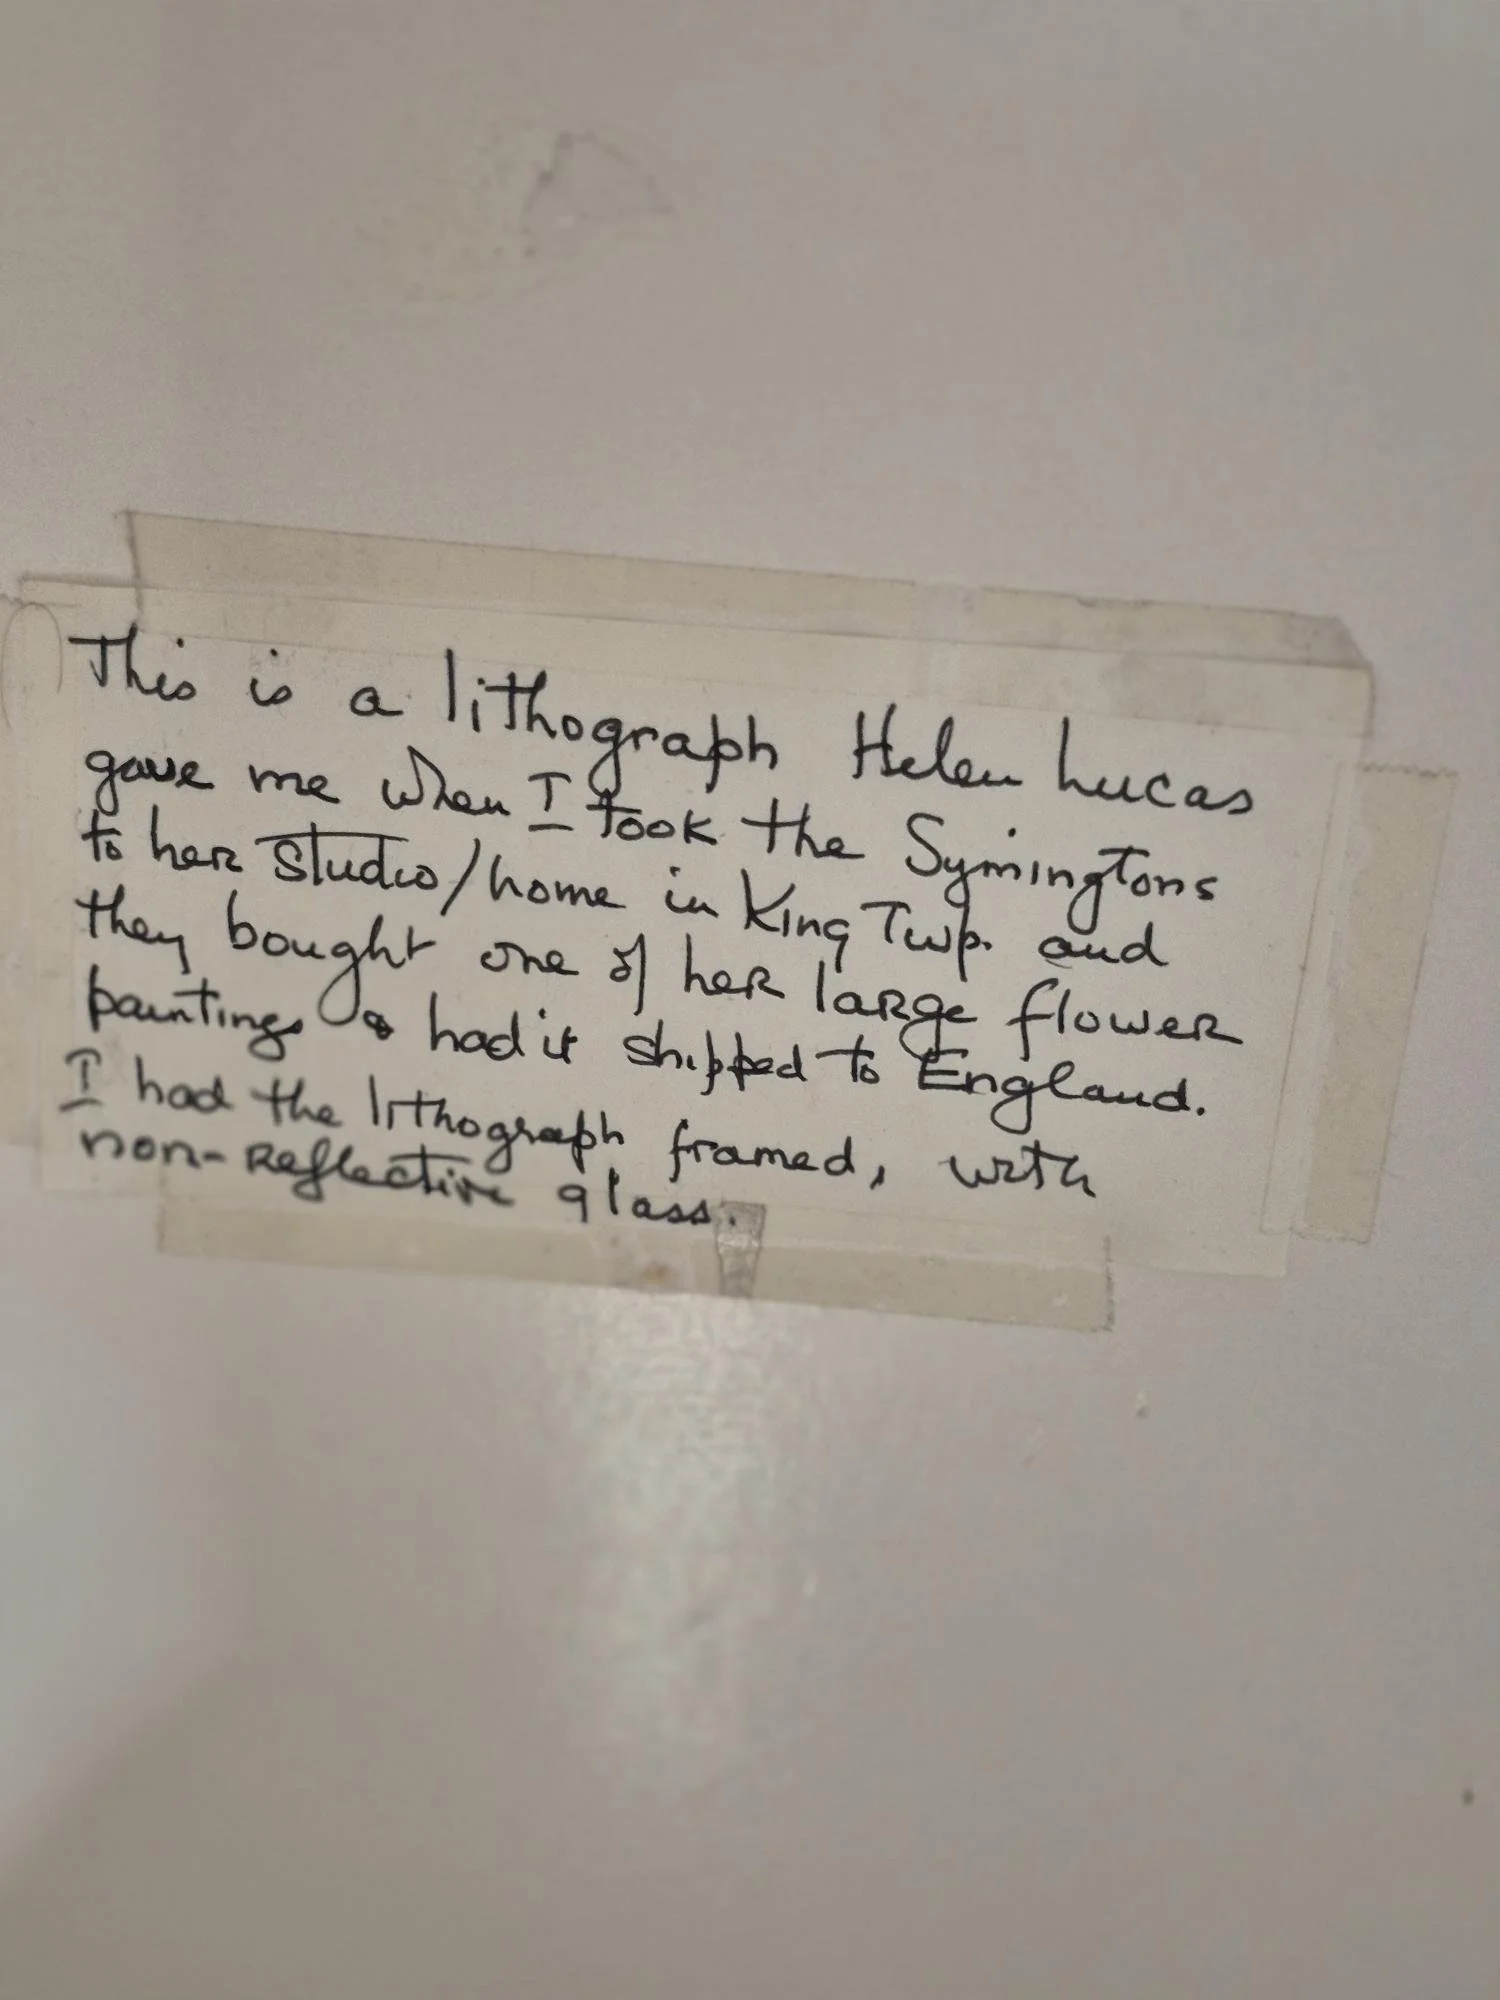 This is a lithograph Helen Lucas
gave me when I took the Symingtons
to her studio/home in King Twp. and
they bought one of her large flower
paintings & had it shipped to England.
I had the lithograph framed, with
non-reflective glass.